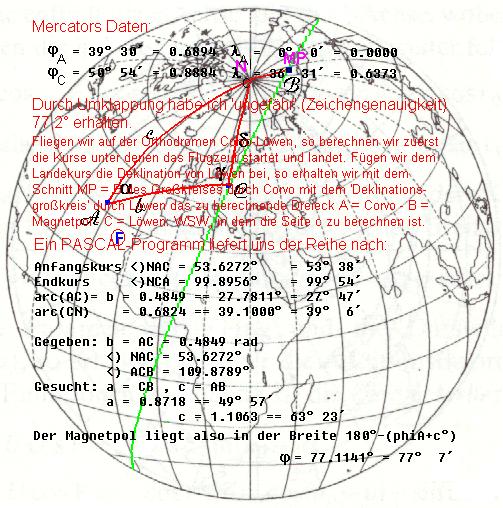 Mercators Daten:
φA = 39° 30' = 0.6894 λA = 0° 0' = 0.0000
φC = 50° 54' = 0.8884 λ = 36° 31' = 0.6373
N
MP
B
Durch Umklappung habe ich ungefähr (Zeichengenauigkeit)
77.2° erhalten.
Fliegen wir auf der Orthodromen Corvo-Löwen, so berechnen wir zuerst
die Kurse unter denen das Flugzeug startet und landet. Fügen wir dem
Landekurs die Deklination von Löwen bei, so erhalten wir mit dem
Schnitt MP = B des Großkreises durch Corvo mit dem 'Deklinations-
großkreis' durch Löwen das zu berechnende Dreieck A = Corvo - B =
Magnetpol, C = Löwen, WSW, in dem die Seite c zu berechnen ist.
c
δ
γ
α
b
A
F
Ein PASCAL-Programm liefert uns der Reihe nach:
Anfangskurs <)NAC = 53.6272° = 53° 38'
Endkurs <)NCA = 99.8956° = 99° 54'
arc(AC)= b = 0.4849 == 27.7811° = 27° 47'
arc(CN) = 0.6824 == 39.1000° = 39° 6'
Gegeben: b = AC = 0.4849 rad
<) NAC = 53.6272°
<) ACB = 109.8789°
Gesucht: a = CB , c = AB
a = 0.8718 == 49° 57'
c = 1.1063 == 63° 23'
Der Magnetpol liegt also in der Breite 180°-(phiA+c°)
φ = 77.1141° = 77° 7'